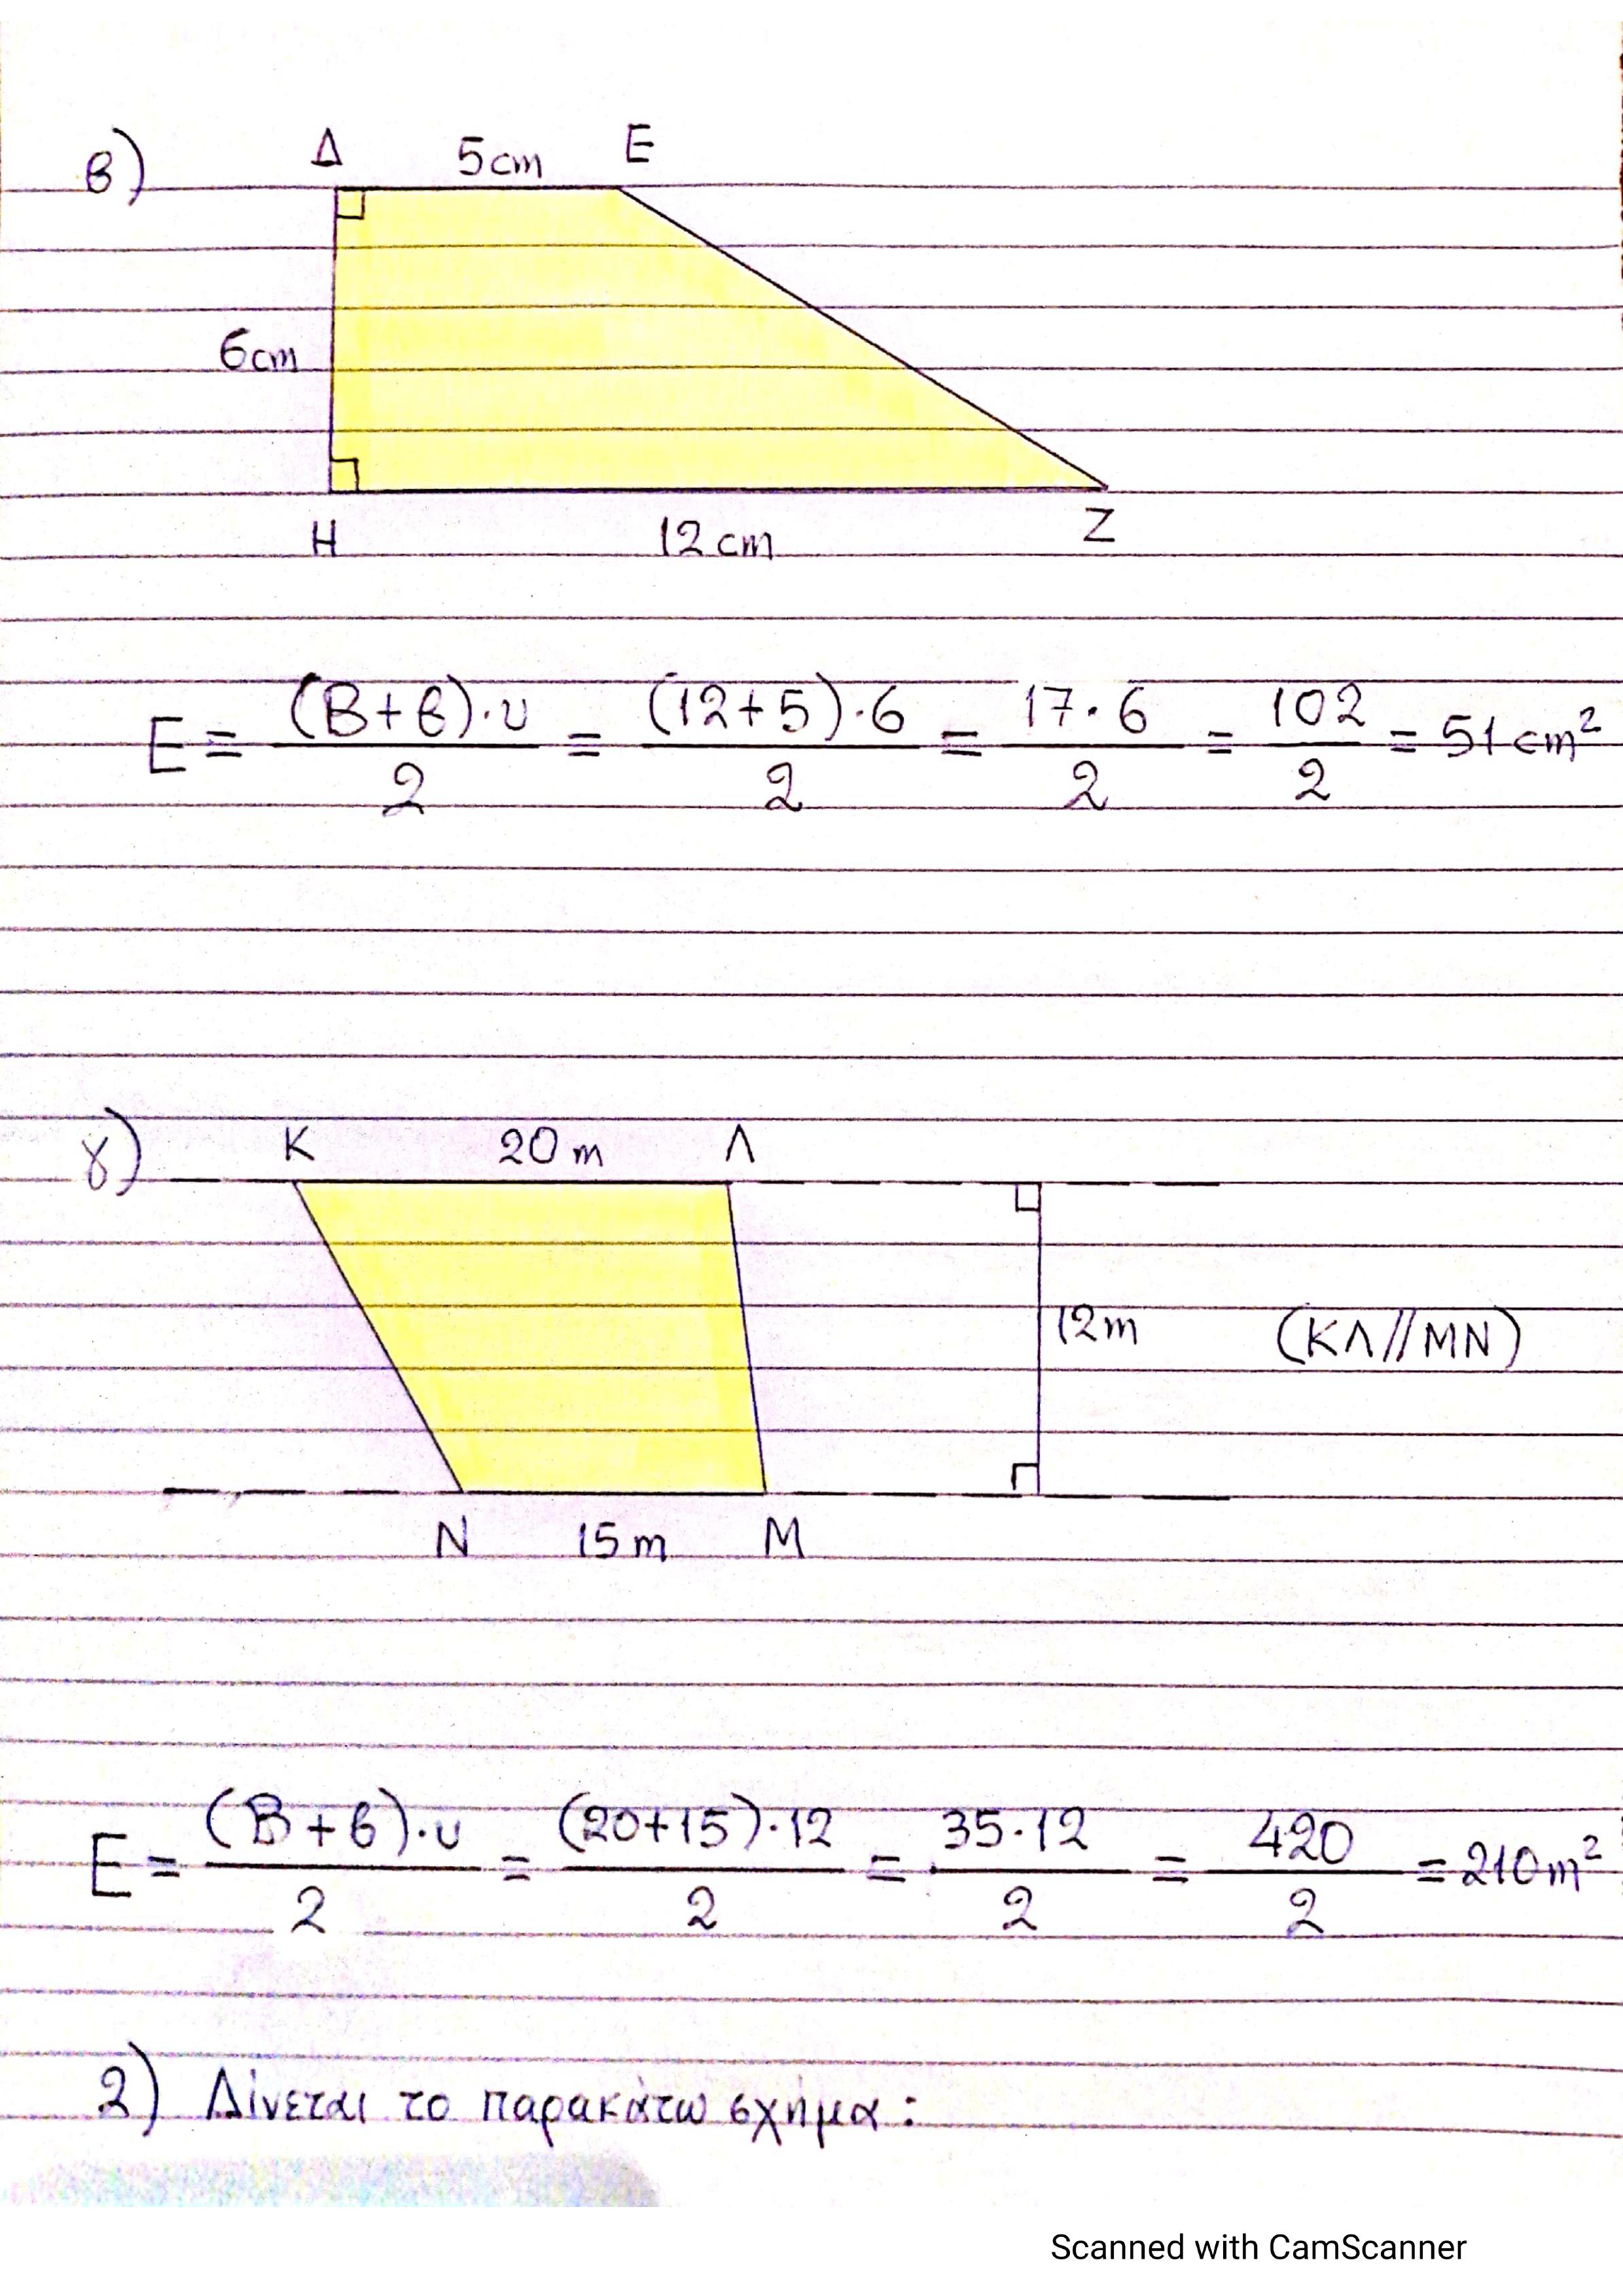 β)
Δ 5cm E
6cm
H 12cm Z
E = (B+β)·υ/2 = (12+5)·6/2 = 17·6/2 = 102/2 = 51 cm²
γ)
K 20m Λ
12m (ΚΛ//ΜΝ)
N 15m M
E = (B+β)·υ/2 = (20+15)·12/2 = 35·12/2 = 420/2 = 210m²
2) Δίνεται το παρακάτω σχήμα:
Scanned with CamScanner